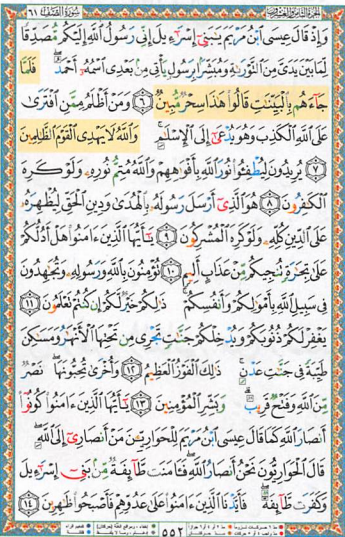 سورة الصف ٦١ الجزء الثامن والعشرون
وَإِذْ قَالَ عِيسَى ابْنُ مَرْيَمَ يَٰبَنِىٓ إِسْرَٰٓءِيلَ إِنِّى رَسُولُ ٱللَّهِ إِلَيْكُم مُّصَدِّقًا
لِّمَا بَيْنَ يَدَىَّ مِنَ ٱلتَّوْرَىٰةِ وَمُبَشِّرًۢا بِرَسُولٍ يَأْتِى مِنۢ بَعْدِى ٱسْمُهُۥٓ أَحْمَدُ ۖ فَلَمَّا
جَآءَهُم بِٱلْبَيِّنَٰتِ قَالُوا۟ هَٰذَا سِحْرٌ مُّبِينٌ ٦ وَمَنْ أَظْلَمُ مِمَّنِ ٱفْتَرَىٰ
عَلَى ٱللَّهِ ٱلْكَذِبَ وَهُوَ يُدْعَىٰٓ إِلَى ٱلْإِسْلَٰمِ ۚ وَٱللَّهُ لَا يَهْدِى ٱلْقَوْمَ ٱلظَّٰلِمِينَ
٧ يُرِيدُونَ لِيُطْفِـُٔوا۟ نُورَ ٱللَّهِ بِأَفْوَٰهِهِمْ وَٱللَّهُ مُتِمُّ نُورِهِۦ وَلَوْ كَرِهَ
ٱلْكَٰفِرُونَ ٨ هُوَ ٱلَّذِىٓ أَرْسَلَ رَسُولَهُۥ بِٱلْهُدَىٰ وَدِينِ ٱلْحَقِّ لِيُظْهِرَهُۥ
عَلَى ٱلدِّينِ كُلِّهِۦ وَلَوْ كَرِهَ ٱلْمُشْرِكُونَ ٩ يَٰٓأَيُّهَا ٱلَّذِينَ ءَامَنُوا۟ هَلْ أَدُلُّكُمْ
عَلَىٰ تِجَٰرَةٍ تُنجِيكُم مِّنْ عَذَابٍ أَلِيمٍ ١٠ تُؤْمِنُونَ بِٱللَّهِ وَرَسُولِهِۦ وَتُجَٰهِدُونَ
فِى سَبِيلِ ٱللَّهِ بِأَمْوَٰلِكُمْ وَأَنفُسِكُمْ ۚ ذَٰلِكُمْ خَيْرٌ لَّكُمْ إِن كُنتُمْ تَعْلَمُونَ ١١
يَغْفِرْ لَكُمْ ذُنُوبَكُمْ وَيُدْخِلْكُمْ جَنَّٰتٍ تَجْرِى مِن تَحْتِهَا ٱلْأَنْهَٰرُ وَمَسَٰكِنَ
طَيِّبَةً فِى جَنَّٰتِ عَدْنٍ ۚ ذَٰلِكَ ٱلْفَوْزُ ٱلْعَظِيمُ ١٢ وَأُخْرَىٰ تُحِبُّونَهَا ۖ نَصْرٌ
مِّنَ ٱللَّهِ وَفَتْحٌ قَرِيبٌ ۗ وَبَشِّرِ ٱلْمُؤْمِنِينَ ١٣ يَٰٓأَيُّهَا ٱلَّذِينَ ءَامَنُوا۟ كُونُوٓا۟
أَنصَارَ ٱللَّهِ كَمَا قَالَ عِيسَى ٱبْنُ مَرْيَمَ لِلْحَوَارِيِّۦنَ مَنْ أَنصَارِىٓ إِلَى ٱللَّهِ ۖ
قَالَ ٱلْحَوَارِيُّونَ نَحْنُ أَنصَارُ ٱللَّهِ ۖ فَـَٔامَنَت طَّآئِفَةٌ مِّنۢ بَنِىٓ إِسْرَٰٓءِيلَ
وَكَفَرَت طَّآئِفَةٌ ۖ فَأَيَّدْنَا ٱلَّذِينَ ءَامَنُوا۟ عَلَىٰ عَدُوِّهِمْ فَأَصْبَحُوا۟ ظَٰهِرِينَ ١٤
٥٥٢